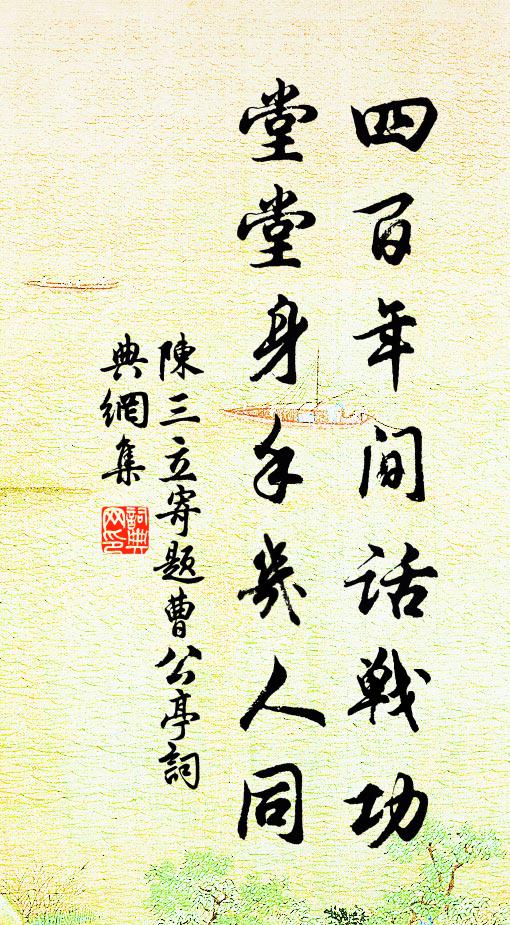 四百年間話戦功
堂堂身手幾人同
陳三立寄題曹公亭詞
典網集
詞典
网印